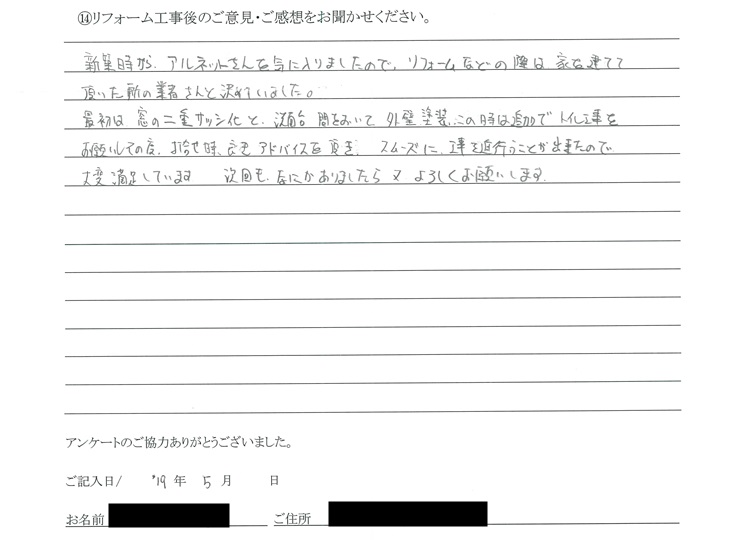 ⑭リフォーム工事後のご意見・ご感想をお聞かせください。
新築時から、アルネットさんを気に入りましたので、リフォームなどの際は家を建てて
頂いた所の業者さんと決めていました。
最初は窓の二重サッシ化と、洗面台 間をおいて外壁塗装、この時は追加でトイレ工事を
お願いしその度、打合せ時、アドバイスを頂き、スムーズに、工事を進行うことが出来たので
大変満足しています 次回も、なにかありましたら又よろしくお願いします。
アンケートのご協力ありがとうございました。
ご記入日/ '19 年 5 月 日
お名前 ご住所